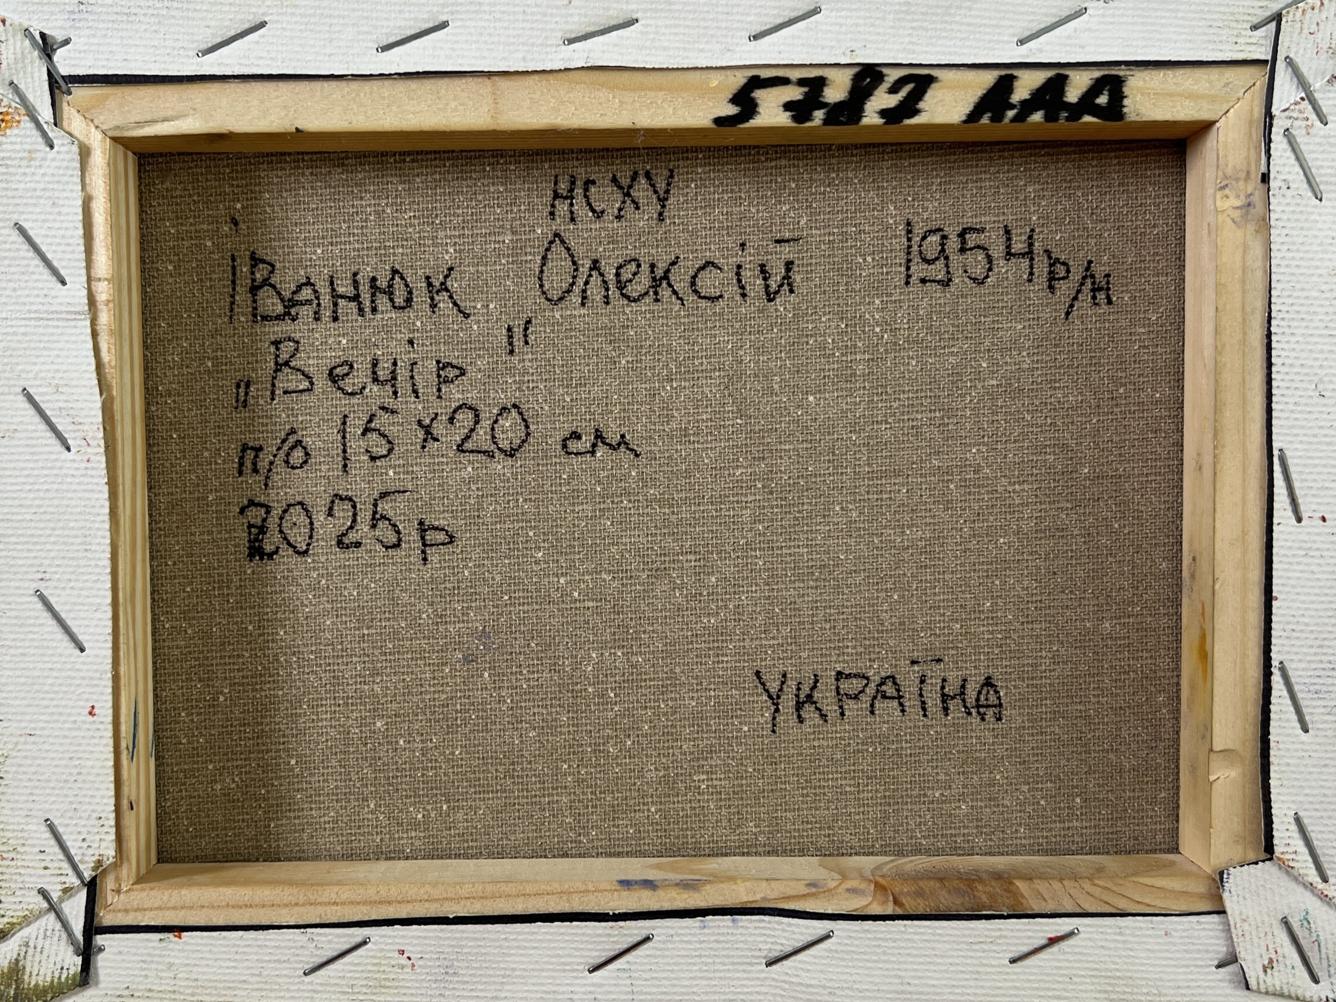 5787 ААА
НСХУ
Іванюк Олексій 1954 р/н
„Вечір"
п/о 15×20 см
2025р
УКРАЇНА